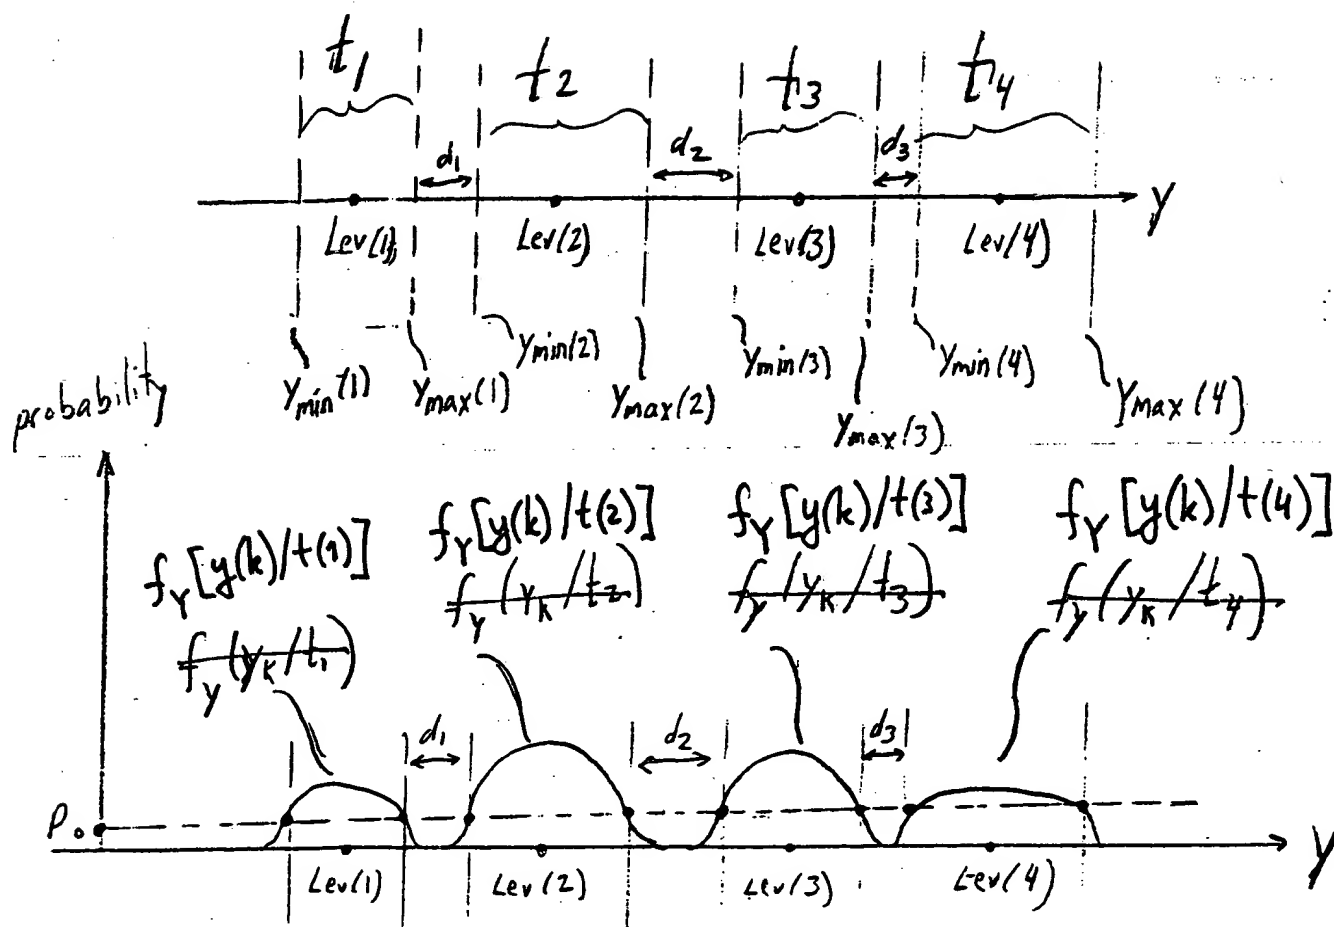 t1 t2 t3 t4
d1 d2 d3
Lev(1) Lev(2) Lev(3) Lev(4) y
Ymin(1) Ymax(1) Ymin(2) Ymax(2) Ymin(3) Ymax(3) Ymin(4) Ymax(4)
probability
fY[y(k)/t(1)] fY[y(k)/t(2)] fY[y(k)/t(3)] fY[y(k)/t(4)]
fy(yk/t1) fy(yk/t2) fy(yk/t3) fy(yk/t4)
d1 d2 d3
Po
Lev(1) Lev(2) Lev(3) Lev(4) y